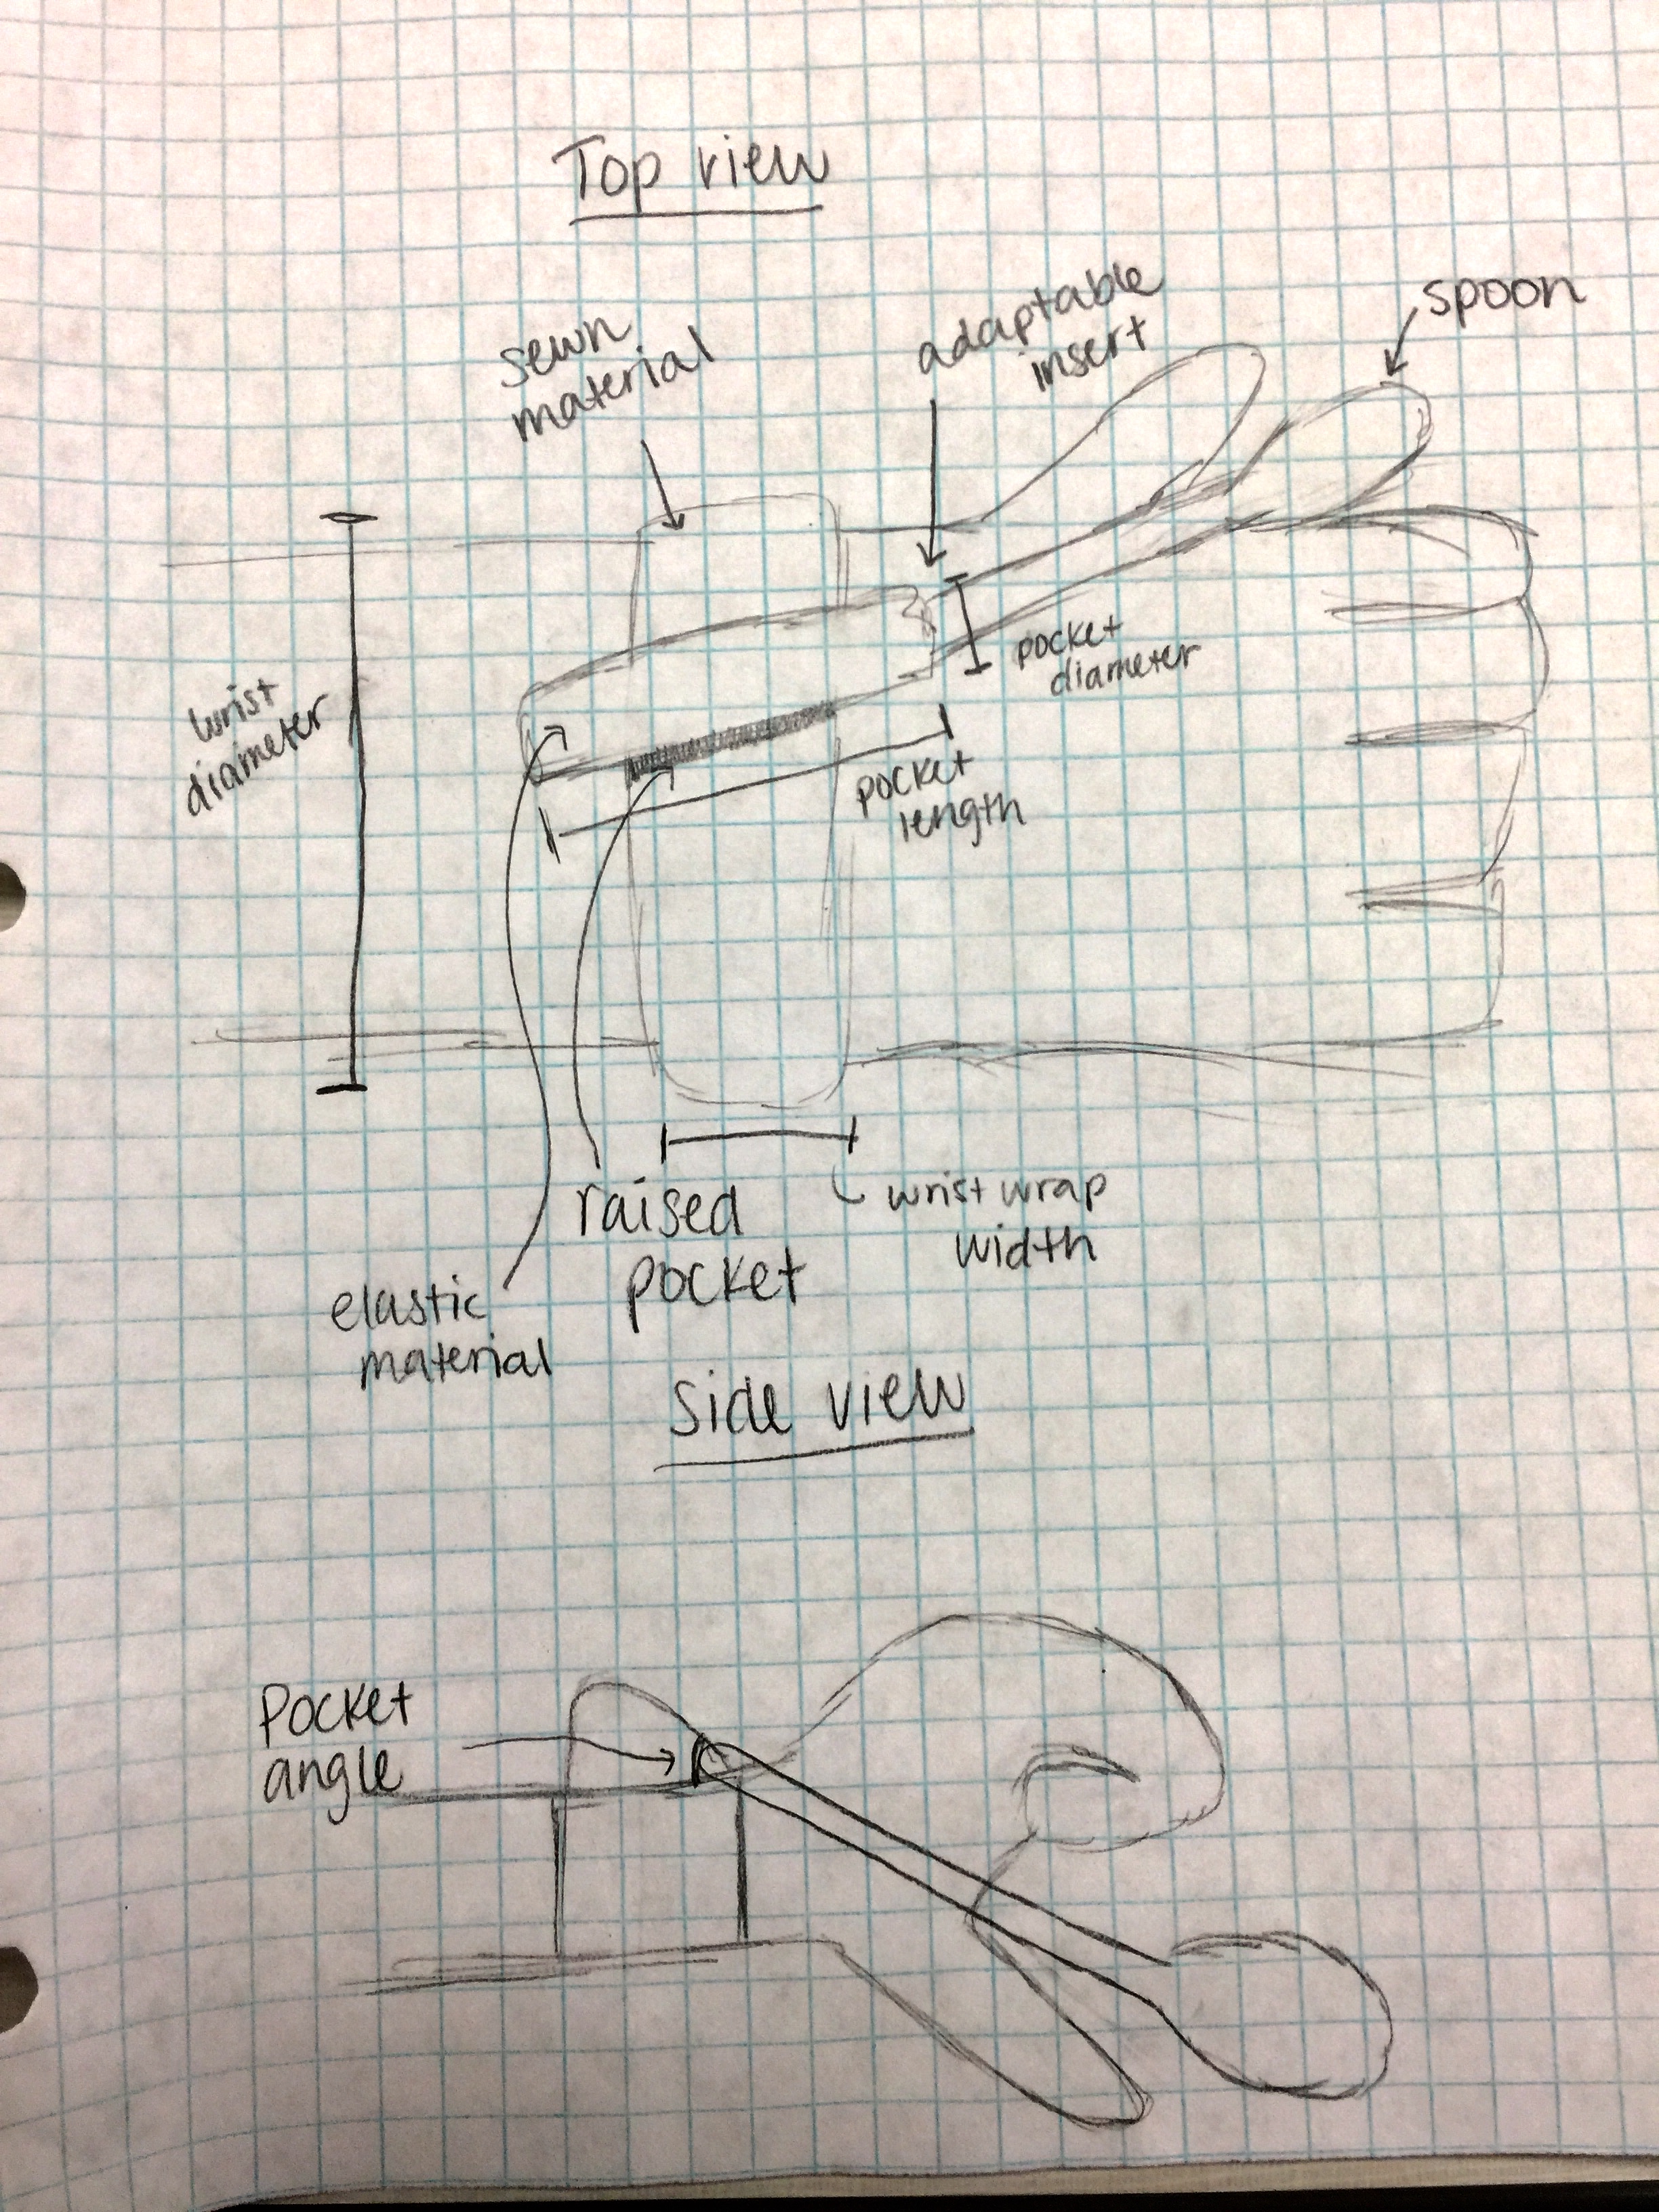 Top view
sewn
material
adaptable
insert
spoon
wrist
diameter
pocket
diameter
pocket
length
raised
pocket
wrist wrap
width
elastic
material
Side view
Pocket
angle